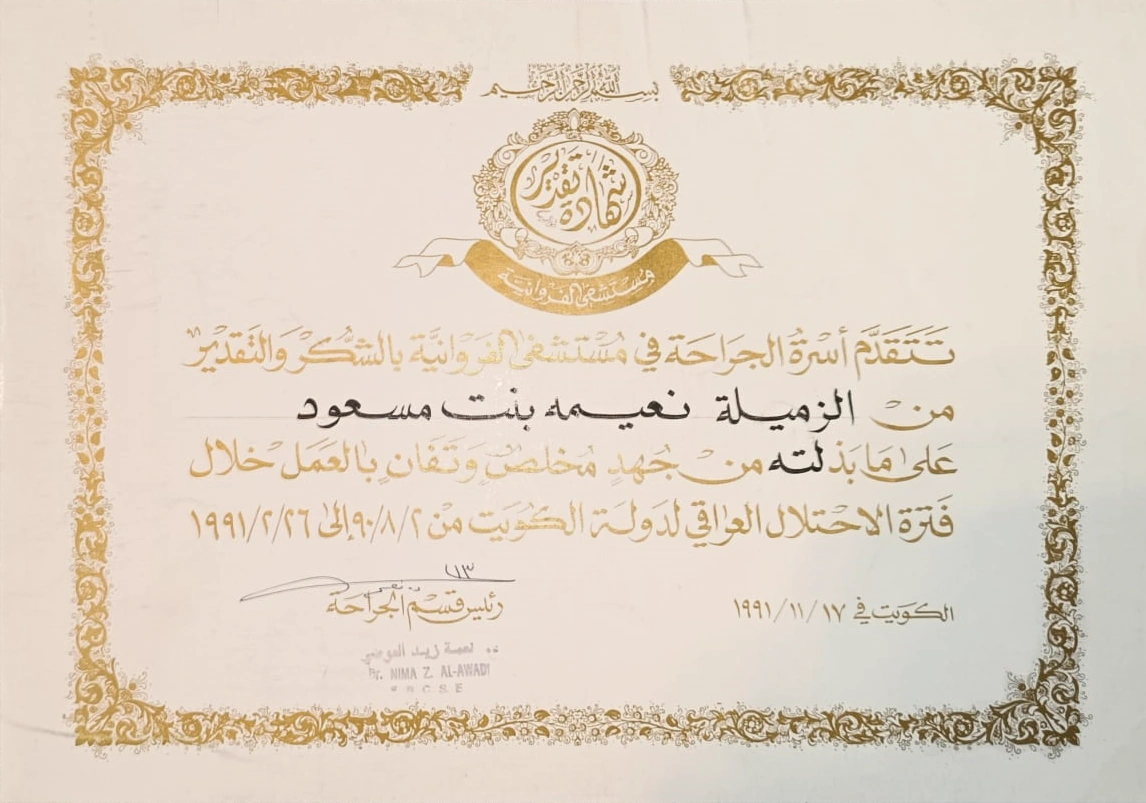 بسم الله الرحمن الرحيم
شهادة تقدير
مستشفى الفروانية
تَتَقَدَّم أسرَة الجرَاحَة في مُسْتشفى الفروانيَّة بالشُّكر وَالتَقدير
من الزميلة نعيمه بنت مسعود
عَلى مَا بَذلته من جُهدٍ مُخلصٍ وَتَفَانٍ بالعَمَل خلال
فَترَة الاحتلال العراقي لدولة الكويت منْ ٩٠/٨/٢ إلى ١٩٩١/٢/٢٦
الكويت في ١٩٩١/١١/١٧
رئيس قسم الجراحة
نعمة زيد العوضي
Dr. NIMA Z. AL-AWADI